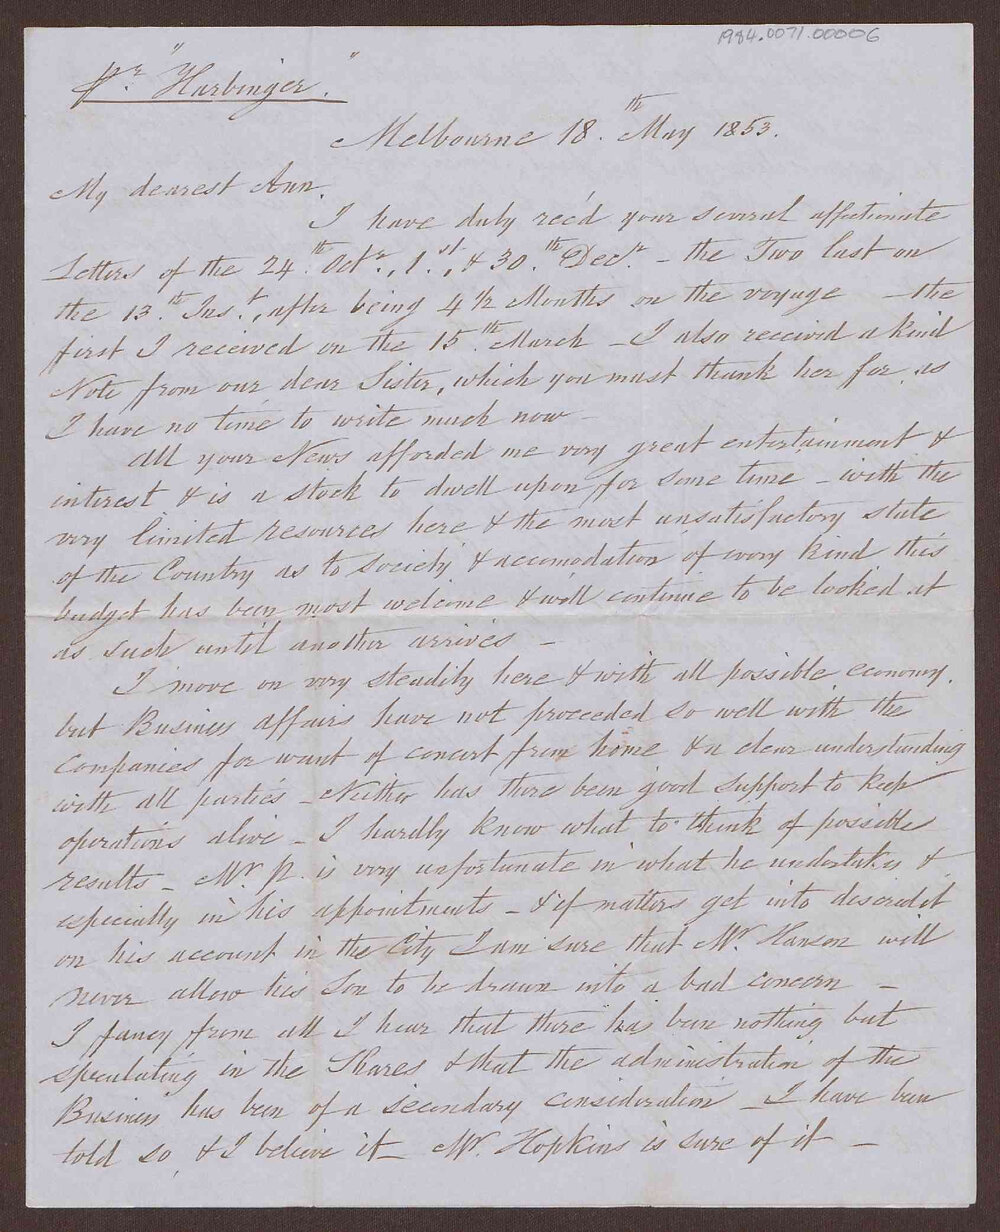 1984.0071.00006
pr. "Harbinger."
Melbourne 18.th May 1853.
My dearest Ann.
I have duly rec'd your several affectionate
Letters of the 24.th Octr., 1.st, & 30.th Decr. - the Two last on
the 13.th Inst., after being 4 1/2 Months on the voyage - the
first I received on the 15.th March - I also received a kind
Note from our dear Sister, which you must thank her for, as
I have no time to write much now -
All your News afforded me very great entertainment &
interest & is a stock to dwell upon for some time - with the
very limited resources here & the most unsatisfactory state
of the Country as to society & accomodation of every kind this
budget has been most welcome & will continue to be looked at
as such until another arrives -
I move on very steadily here & with all possible economy.
but Business affairs have not proceeded so well with the
Companies for want of concert from home & a clear understanding
with all parties - Neither has there been good support to keep
operations alive - I hardly know what to think of possible
results - Mr. P. is very unfortunate in what he undertakes &
especially in his appointments - & if matters get into discredit
on his account in the City I am sure that Mr. Hanson will
never allow his Son to be drawn into a bad concern -
I fancy from all I hear that there has been nothing but
speculating in the Shares & that the administration of the
Business has been of a secondary consideration - I have been
told so, & I believe it - Mr. Hopkins is sure of it -